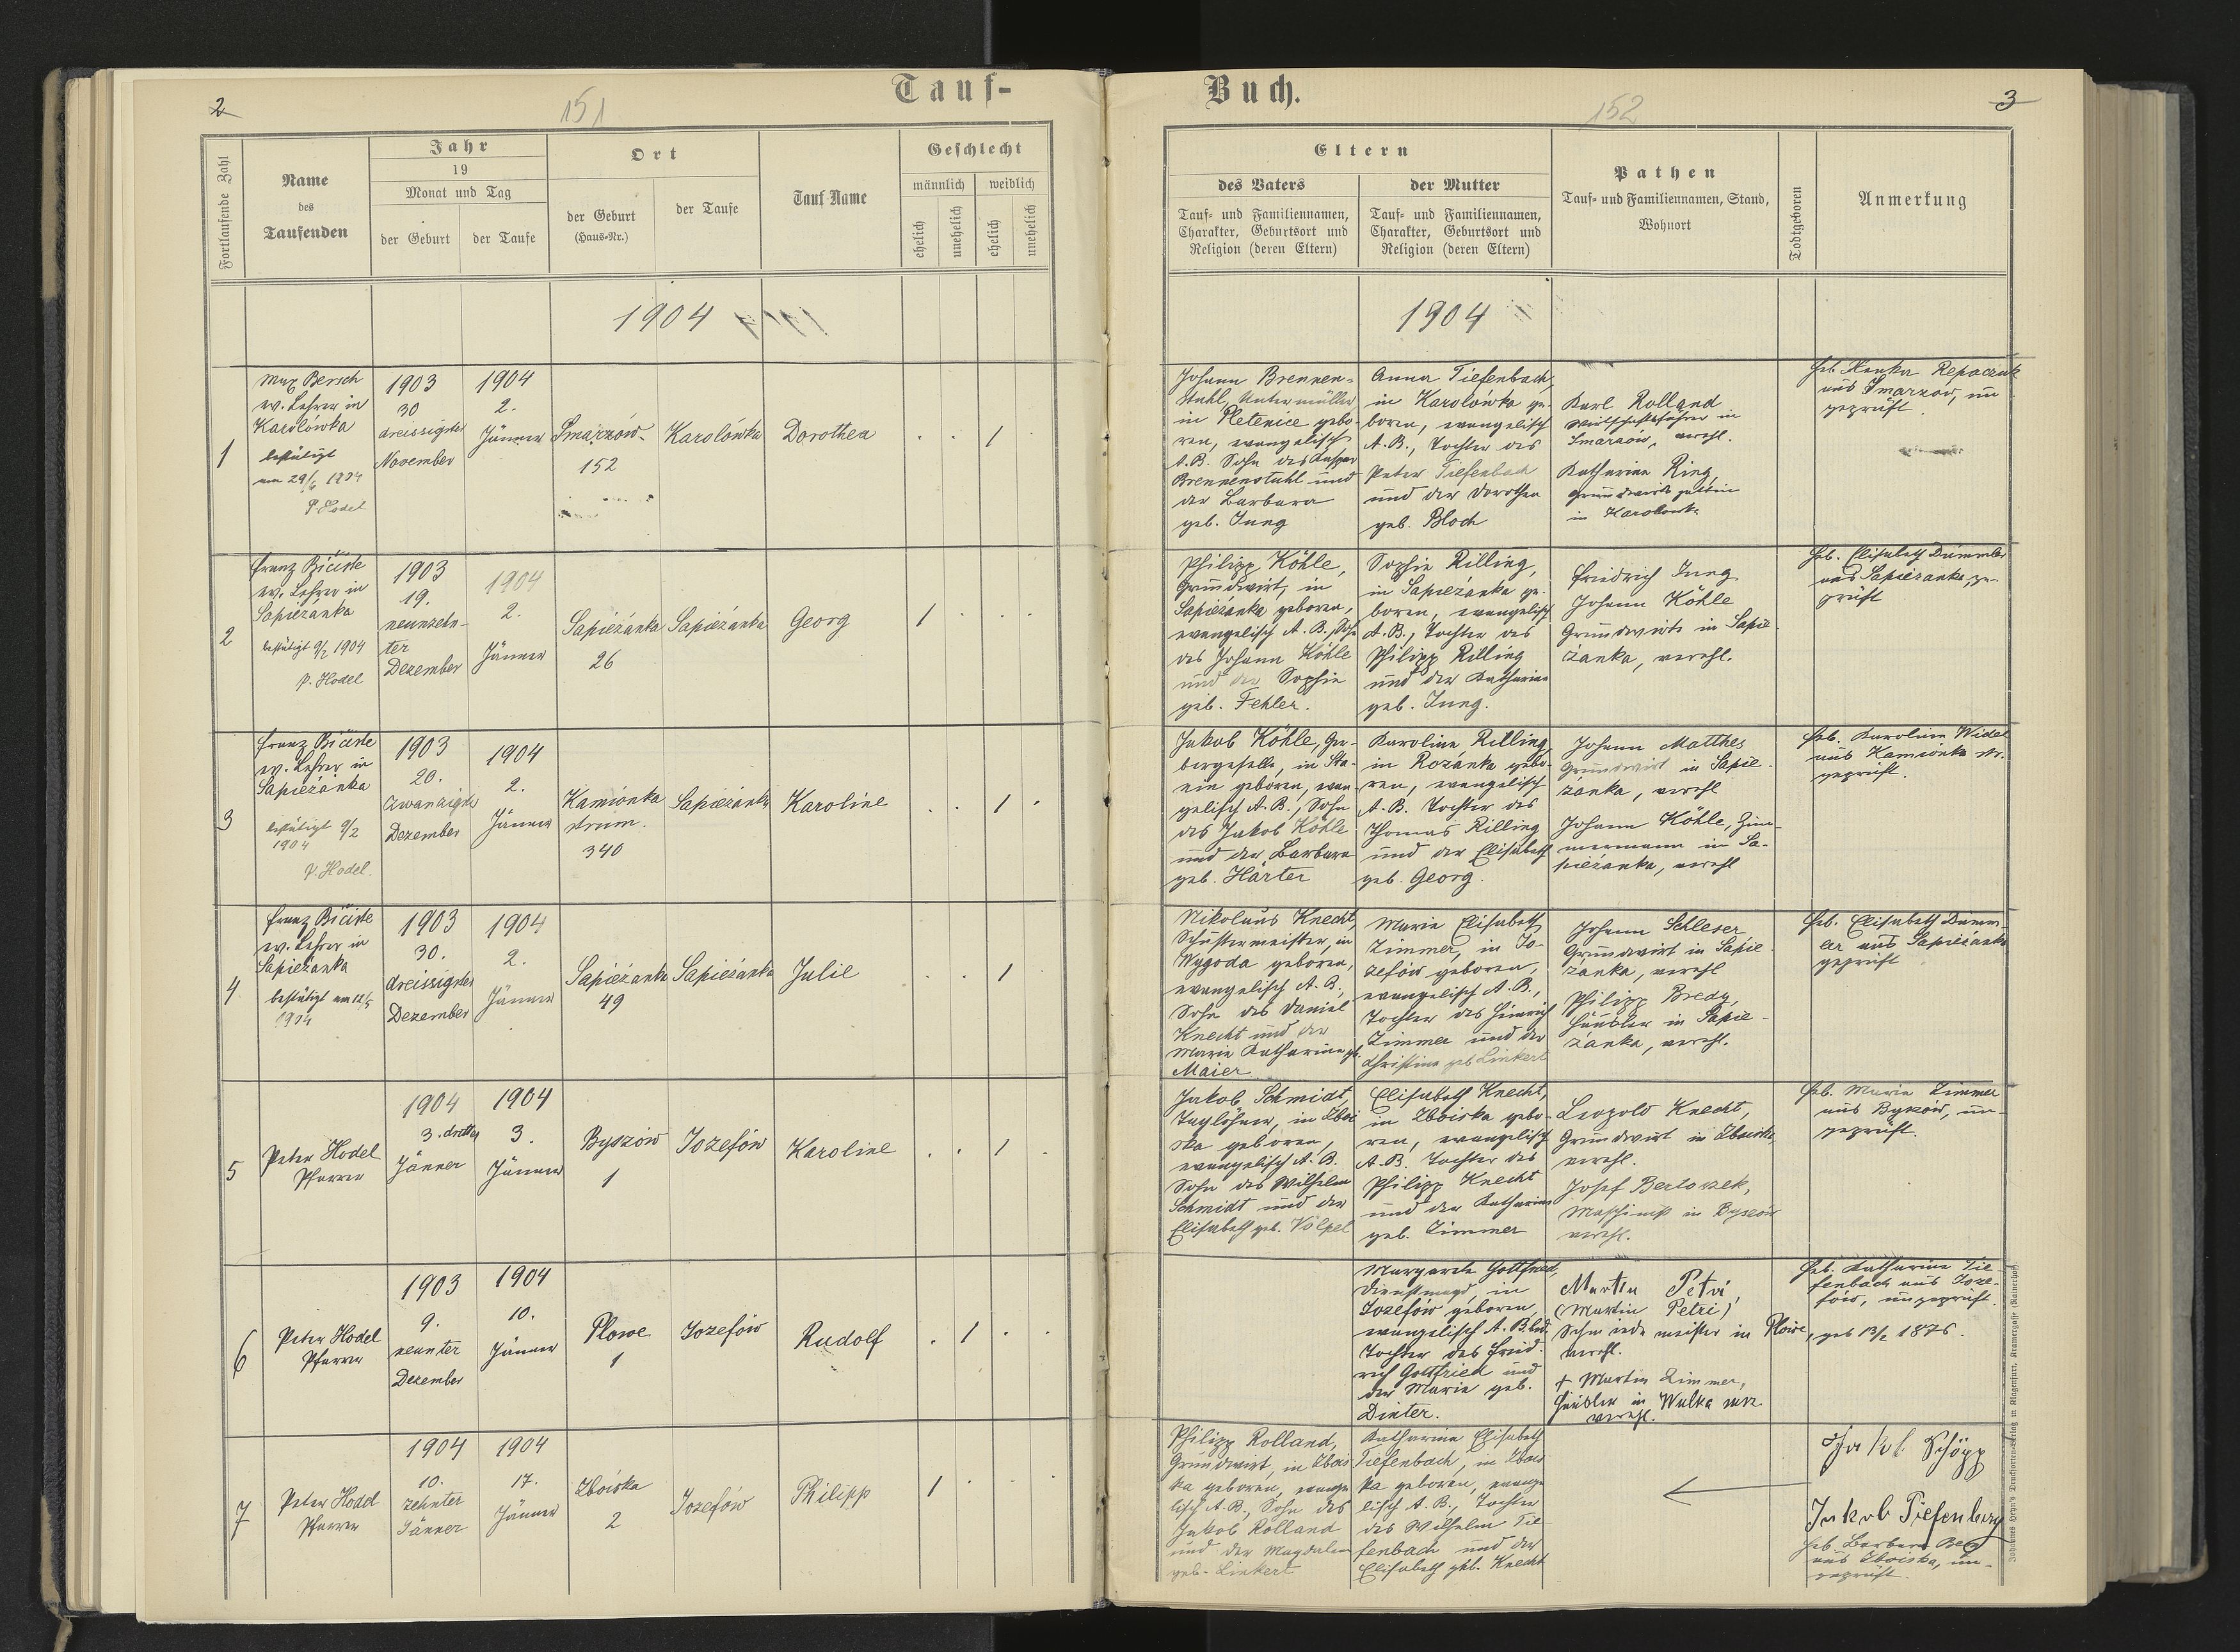 2
151
Tauf-
Fortlaufende Zahl
Name
des
Taufenden
Jahr
19
Monat und Tag
der Geburt
der Taufe
Ort
der Geburt
(Haus-Nr.)
der Taufe
Tauf Name
Geschlecht
männlich
weiblich
ehelich
unehelich
ehelich
unehelich
1904
1
Max Bersch
ev. Lehrer in
Karolówka
bestätigt
am 29/6 1904
P. Hodel
1903
30
dreissigster
November
1904
2.
Jänner
Smarzów
152
Karolówka
Dorothea
1
2
Franz Bičište
ev. Lehrer in
Sapieżanka
bestätigt 9/2 1904
P. Hodel
1903
19.
neunzehn-
ter
Dezember
1904
2.
Jänner
Sapieżanka
26
Sapieżanka
Georg
1
3
Franz Bičište
ev. Lehrer in
Sapieżanka
bestätigt 9/2
1904
P. Hodel.
1903
20.
zwanzigster
Dezember
1904
2.
Jänner
Kamionka
strum.
340
Sapieżanka
Karoline
1
4
Franz Bičište
ev. Lehrer in
Sapieżanka
bestätigt am 12/5
1904
1903
30.
dreissigster
Dezember
1904
2.
Jänner
Sapieżanka
49
Sapieżanka
Julie
1
5
Peter Hodel
Pfarrer
1904
3. dritter
Jänner
1904
3.
Jänner
Byszów
1
Jozefów
Karoline
1
6
Peter Hodel
Pfarrer
1903
9.
neunter
Dezember
1904
10.
Jänner
Plowe
1
Jozefów
Rudolf
1
7
Peter Hodel
Pfarrer
1904
10.
zehnter
Jänner
1904
17.
Jänner
Zboiska
2
Jozefów
Philipp
1
Buch.
152
3
Eltern
des Vaters
Tauf- und Familiennamen,
Charakter, Geburtsort und
Religion (deren Eltern)
der Mutter
Tauf- und Familiennamen,
Charakter, Geburtsort und
Religion (deren Eltern)
Pathen
Tauf- und Familiennamen, Stand,
Wohnort
Todtgeboren
Anmerkung
1904
Johann Brennen-
stuhl, Untermüller
in Pletenice gebo-
ren, evangelisch
A.B. Sohn des Kaspar
Brennenstuhl und
der Barbara
geb. Jung
Anna Tiefenbach,
in Karolówka ge-
boren, evangelisch
A.B., Tochter des
Peter Tiefenbach
und der Dorothea
geb. Bloch
Karl Rolland
Wirtschaftsführer in
Smarzów, verehl.
Katharina Ring,
Grundwirtsgattin
in Karolówka
Heb. Hanka Repaczuk
aus Smarzów, un
geprüft.
Philipp Köhle,
Grundwirt, in
Sapieżanka geboren,
evangelisch A.B., Sohn
des Johann Köhle
und der Sophie
geb. Fehler.
Sophie Rilling,
in Sapieżanka ge-
boren, evangelisch
A.B., Tochter des
Philipp Rilling
und der Katharina
geb. Jung.
Friedrich Jung
Johann Köhle
Grundwirte in Sapie
żanka, verehl.
Heb. Elisabeth Dummler
aus Sapieżanka, ge-
prüft
Jakob Köhle, Ger-
bergeselle, in Sta-
nin geboren, evan-
gelisch A.B., Sohn
des Jakob Köhle
und der Barbara
geb. Härter
Karoline Rilling,
in Rozanka gebo-
ren, evangelisch
A.B. Tochter des
Thomas Rilling
und der Elisabeth
geb. Georg.
Johann Matthes
Grundwirt in Sapie-
żanka, verehl
Johann Köhle, Zim-
mermann in Sa-
pieżanka, verehl
Heb. Karoline Widel
aus Kamionka str.
geprüft.
Nikolaus Knecht,
Schustermeister, in
Wygoda geboren,
evangelisch A.B.,
Sohn des Daniel
Knecht und der
Marie Katharina geb.
Maier
Marie Elisabeth
Zimmer, in Jo-
zefów geboren,
evangelisch A.B.,
Tochter des Heinrich
Zimmer und der
Christine geb Linkert
Johann Schleser
Grundwirt in Sapie-
żanka, verehl
Philipp Bredy,
Häusler in Sapie-
żanka, verehl.
Heb. Elisabeth Dumm-
ler aus Sapieżanka
geprüft
Jakob Schmidt,
Taglöhner, in Zboi
ska geboren,
evangelisch A.B.
Sohn des Wilhelm
Schmidt und der
Elisabeth geb. Völpel
Elisabeth Knecht,
in Zboiska gebo-
ren, evangelisch
A.B. Tochter des
Philipp Knecht
und der Katharina
geb. Zimmer
Leopold Knecht,
Grundwirt in Zboiska
verehl.
Josef Bartoszek,
Maschinist in Byszów
verehl.
Heb. Marie Zimmer
aus Byszów, un-
geprüft.
Margarete Gottfried,
Dienstmagd, in
Jozefów geboren,
evangelisch A.B. led.
Tochter des Fried-
rich Gottfried und
der Marie geb.
Dinter.
Martin Petri,
(Martin Petri)
Schmiedemeister in Plowe,
verehl.
+ Martin Zimmer,
Häusler in Wulka
verehl.
Heb. Katharina Tie-
fenbach aus Joze-
fów, ungeprüft.
geb 13/2 1876.
Philipp Rolland,
Grundwirt, in Zbois
ka geboren, evange
lisch A.B., Sohn des
Jakob Rolland
und der Magdalena
geb. Linkert
Katharina Elisabeth
Tiefenbach, in Zbois
ka geboren, evange
lisch A.B., Tochter
des Wilhelm Tie-
fenbach und der
Elisabeth geb. Knecht
Jakob Schöpp
Jakob Tiefenbach
Heb. Barbara
aus Zboiska, un-
geprüft.
Johannes Heyn's Druckforten-Verlag in Klagenfurt, Kramergasse (Rainerhof).